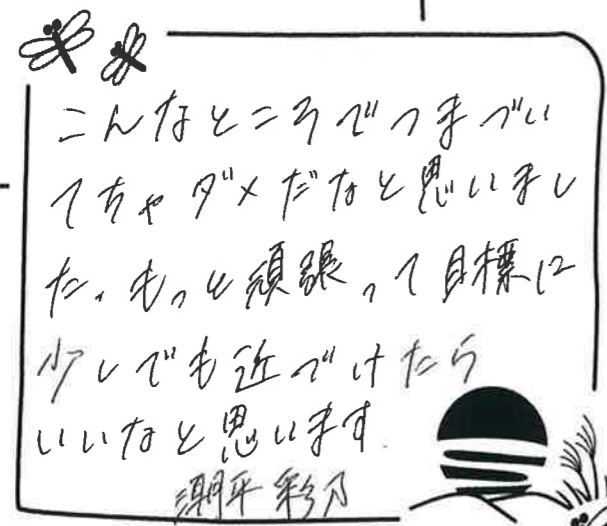 こんなところでつまづい
てちゃダメだなと思いまし
た。もっと頑張って目標に
少しでも近づけたら
いいなと思います
潮平彩乃